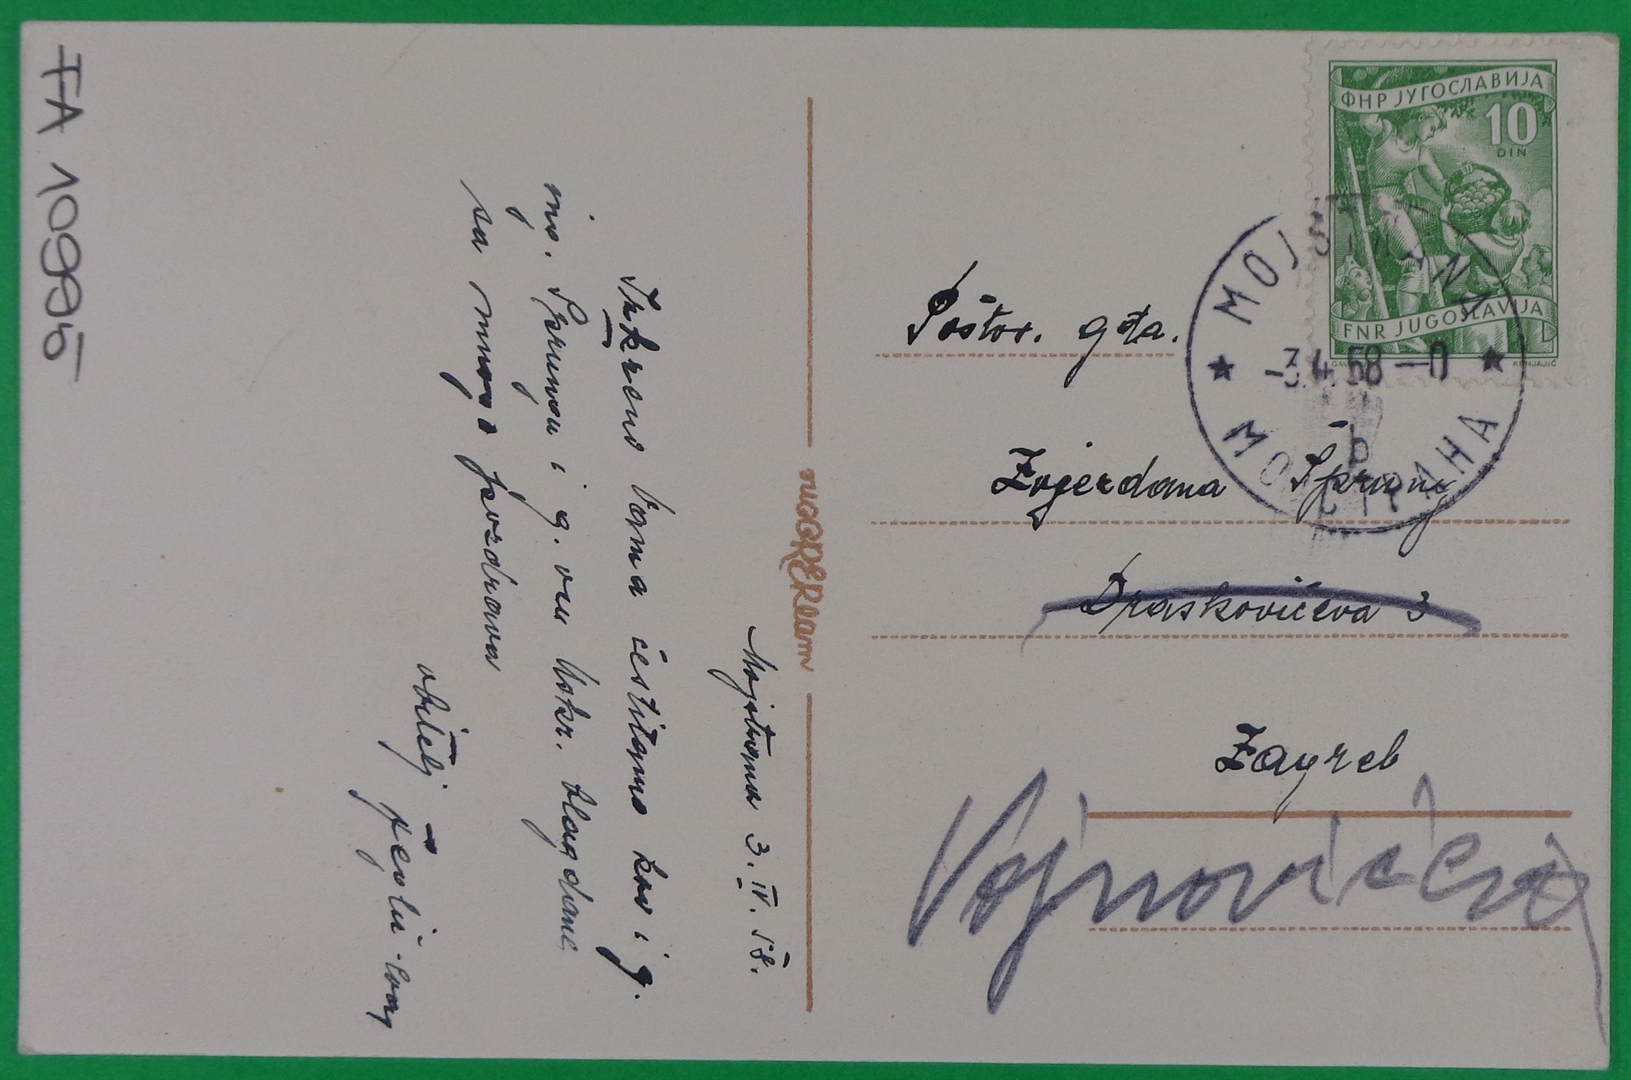 FA 10995
Mojstrana 3. IV. 58.
Iskreno Vama čestitamo kao i g.
inž. Šprungu i g. ocu Uskr. blagdane
sa mnogo pozdrava
obitelj
JUGOREKLAM
ФНР ЈУГОСЛАВИЈА
10
DIN
FNR JUGOSLAVIJA
MOJSTRANA
-3.4.58-0
b
МОЈСТРАНА
Poštov. gđa.
Zvjezdana Šprung
Draskovićeva 3
Zagreb
Vojnovićeva